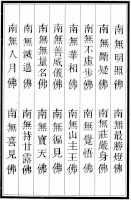 南無明照佛 南無最勝燈佛
南無斷疑佛 南無莊嚴身佛
南無不虛步佛 南無覺悟佛
南無華相佛 南無山主王佛
南無善威儀佛 南無徧見佛
南無無量名佛 南無寶天佛
南無滅過佛 南無持甘露佛
南無人月佛 南無喜見佛